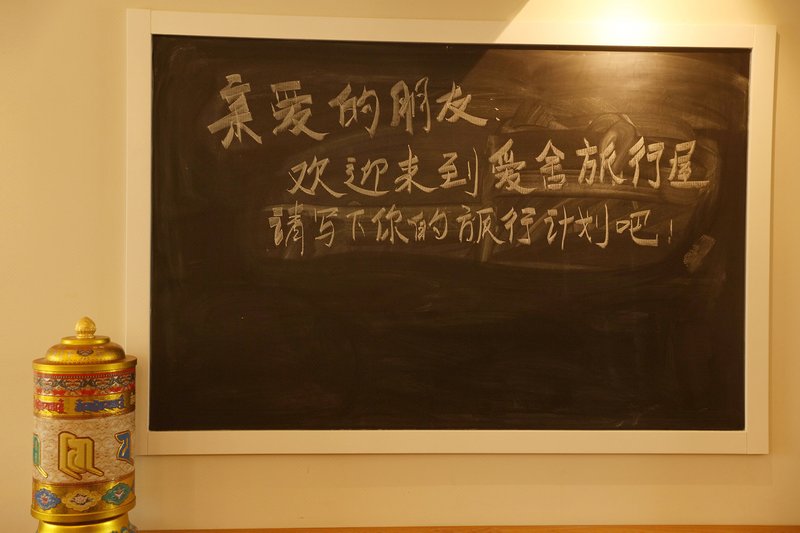 亲爱的朋友:
欢迎来到爱舍旅行屋
请写下你的旅行计划吧!